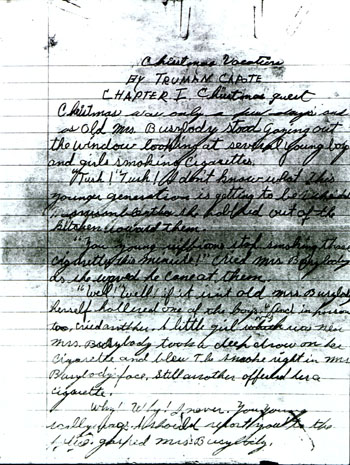 Christmas Vacation
BY TRUMAN CAPOTE
CHAPTER I. Christmas guest
Christmas was only a few days and
as Old Mrs. Busybody stood gazing out
the window looking at several young boys
and girls smoking cigarettes.
"Tush! Tush! I don't know what this
younger generation is getting to be
she hobbled out of the
kitchen toward them.
"You young ruffians stop smoking those
cigaretts this minute!" cried Mrs Busybody
as she waved her cane at them.
"Well! Well! if it isnt old Mrs Busybody
herself hollered one of the boys. "And in person
too, cried another. A little girl which was near
Mrs. Busybody took a deep draw on her
cigarette and blew the smoke right in Mrs
Busybody face. Still another offered her a
cigarette.
Why! Why! I never. You young
I should report you to the
gasped Mrs Busybody.